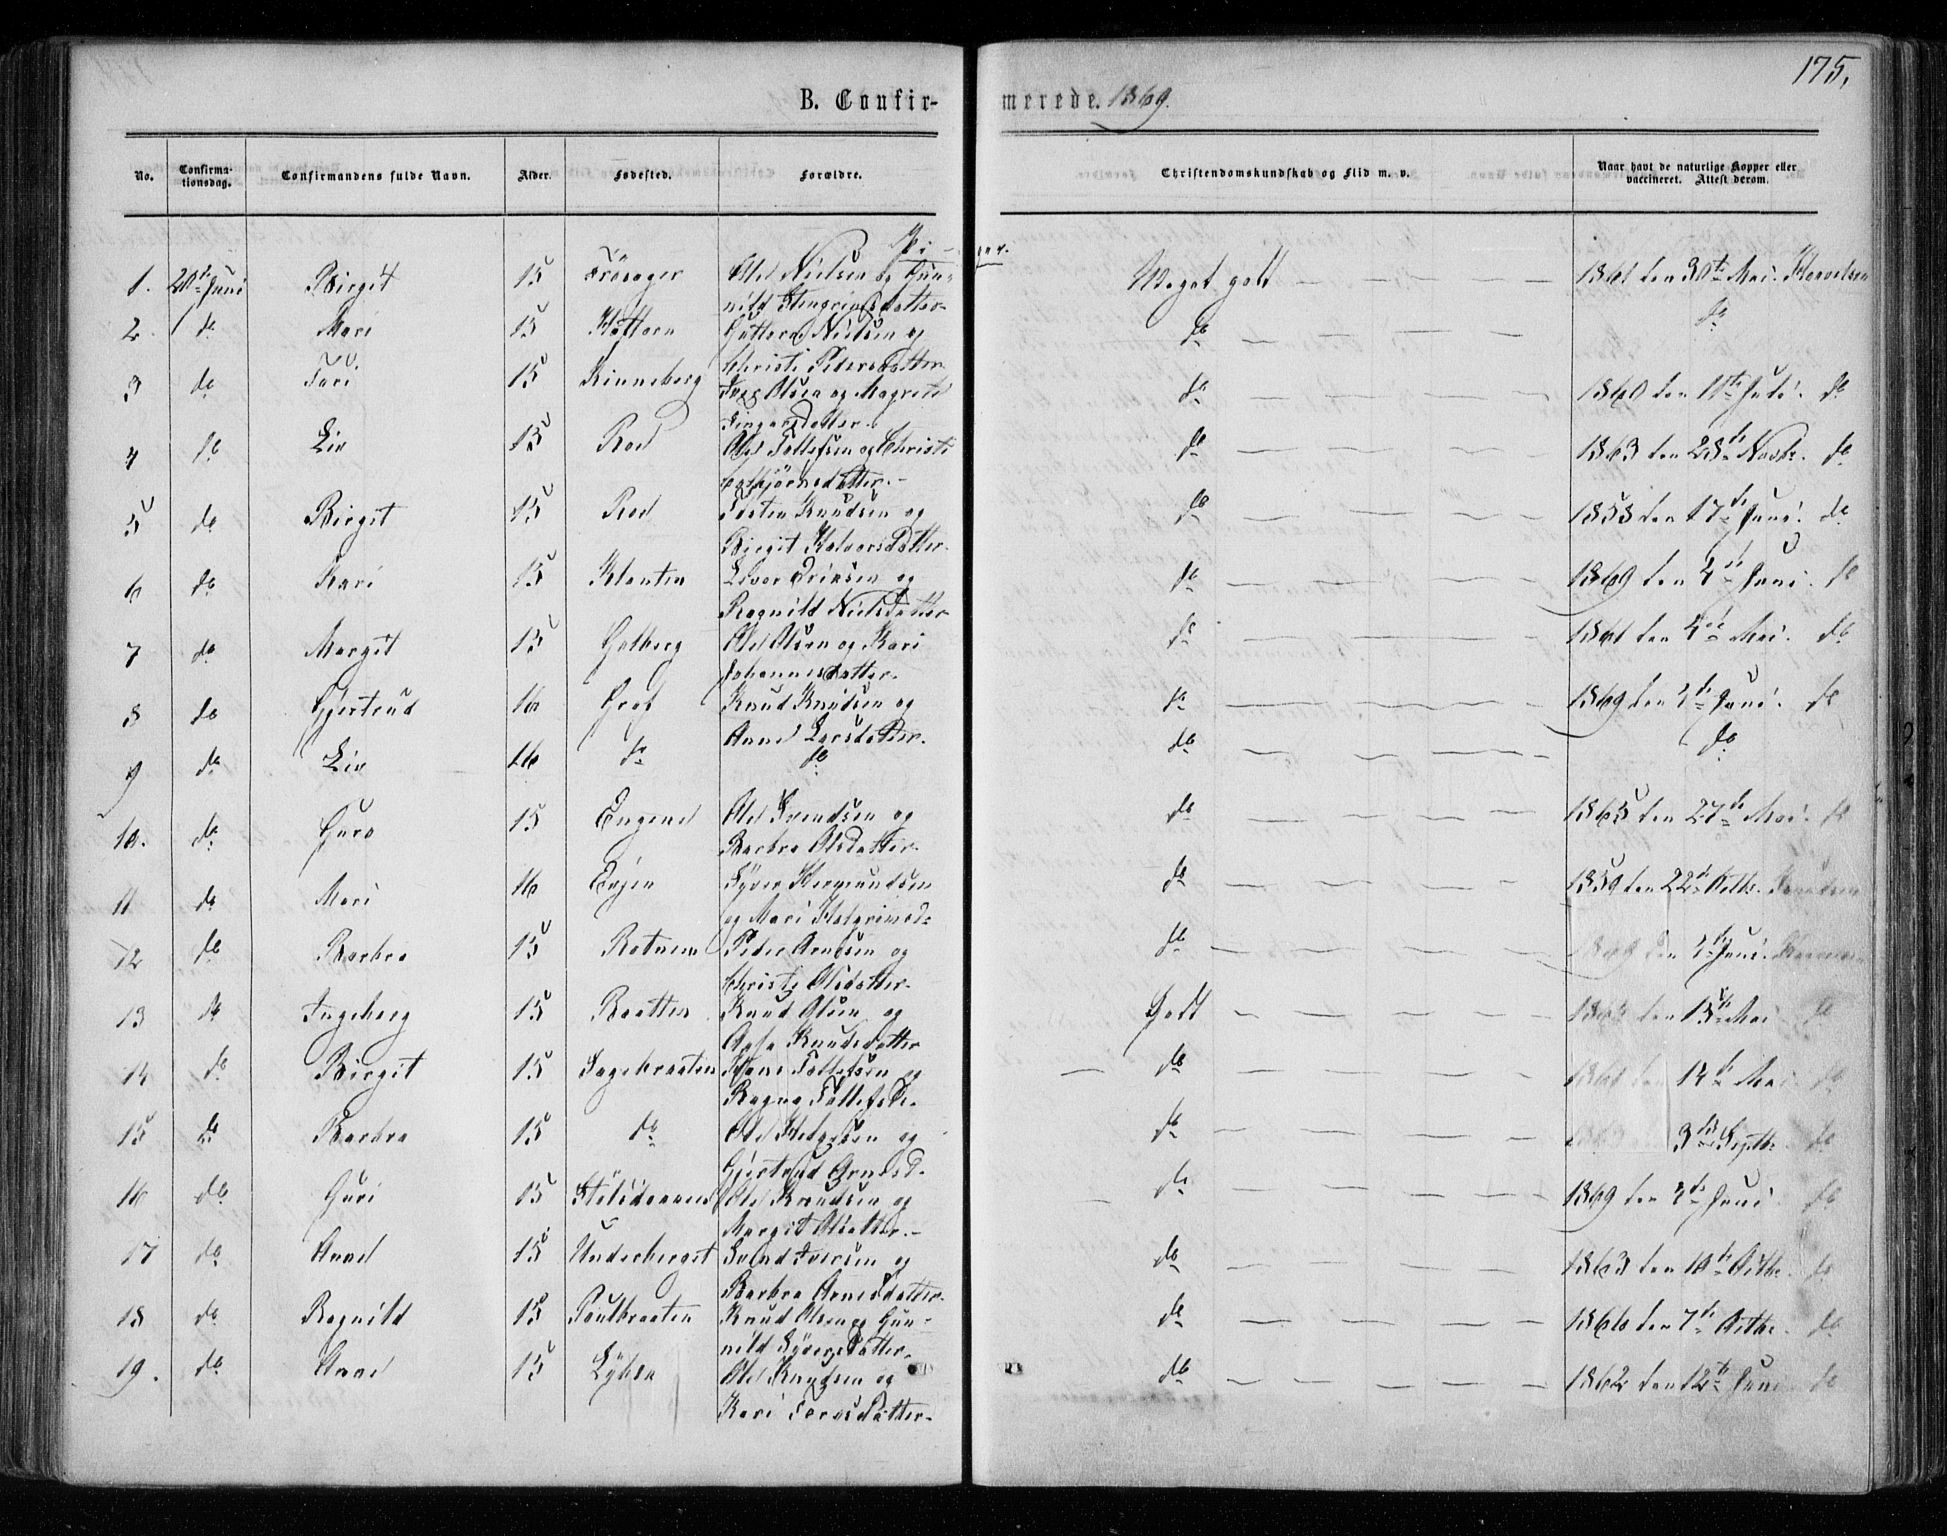 175,
B. Confir-
merede. 1869.
No. Confirma-tionsdag. Confirmandens fulde Navn. Alder. Fødested. Forældre. Christendomskundskab og Flid m. v. Naar havt de naturlige Kopper eller vaccineret. Attest derom.
Pi-
ger.
1. 20de Juni Birgit 15 Frösager Ole Nielsen og Gun- Meget godt 1861 den 30te Mai.
nild Stengrimsdatter
2. do Mari 15 Guttorm Nielsen og do do
Christi Pedersdatter
3 do Turi 15 Rinneberg Olsen og Magrete do 1860 den 11te Juli. do
4 do Liv 15 Roe Ole Tollefsen og Christi do 1863 den 28de Novbr. do
Asbjörnsdatter.
5 do Birgit 15 Roe Knudsen og do den 17de Juni. do
Birgit Halvorsdatter
6 do Kari 15 Klanten Levor Eriksen og do 1869 den 4de Juni. do
Ragnild Nielsdatter
7 do Margit 15 Golberg Ole Olsen og Kari do 1861 den 4de Mai. do
Johannesdatter.
8 do Gjertrud 16 Grof Knud Knudsen og do 1869 den 4de Juni. do
Anne Larsdatter.
9 do Liv 16 do do do do
10. do Guro 15 Engene Ole Svendsen og do 1865 den 27de Mai. do
Barbra Olsdatter
11 do Mari 16 Evjen Syver Hermundsen do 1859 den 22de Octbr. Knudsen
og Mari Halgrimsd:
12 do Barbra 15 Rotnem Peder Arnesen og do 1869 den 4de Juni.
Christi Olsdatter
13 do Ingeborg 15 Braatten Knud Olsen og Godt den 15de Mai do
Aase Knudsdatter
14 do Birgit 15 Sagebraaten Hans Tollefsen og do 1861 den 14de Mai do
Ragne Tollefsd.
15 do Barbra 15 do Ole Helgesen og do 3de Septbr. do
Gjertrud Arnesd.
16 do Guri 15 Ole Knudsen og do 1869 den 4de Juni do
Margit Olsdatter.
17 do Anne 15 Underberget Svend Iversen og do 1863 den 10de Octbr. do
Barbra Arnesdatter.
18 do Ragnild 15 Poulbraaten Knud Olsen og Gun- do 1866 den 7de Octbr. do
nild Syversdatter.
19. do Anne 15 Lykka Ole Knudsen og do 1862 den 12te Juni do
Kari Torasdatter.